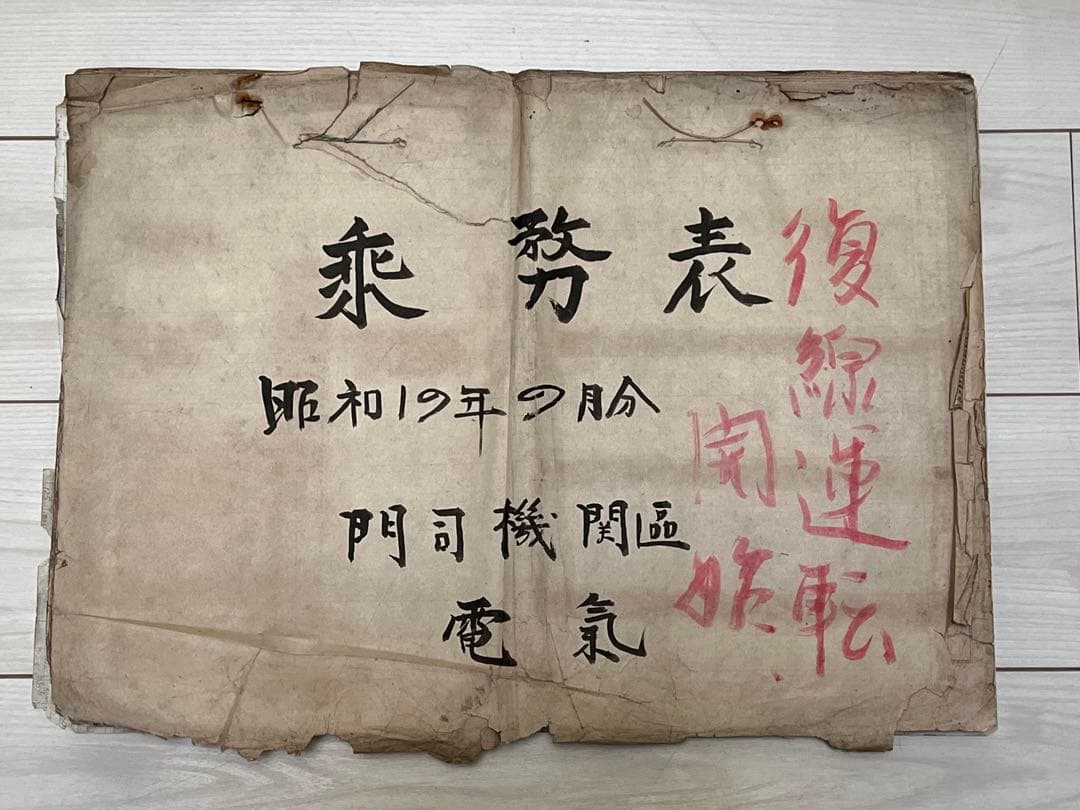 乘務表
昭和19年9月分
門司機関區
電氣
復線運転
開始